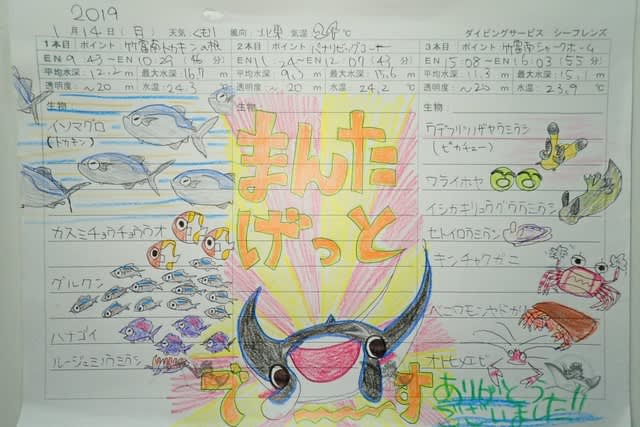 2019
1月14日(日) 天気 くもり 風向: 北東 気温 ℃ ダイビングサービス シーフレンズ
1本目 ポイント 竹富南トカキンの根
EN 9:43〜EN 10:29 (46分)
平均水深: 12.2m 最大水深: 16.7m
透明度: 〜20m 水温: 24.3℃
生物:
イソマグロ
(トカキン)
カスミチョウチョウウオ
グルクン
ハナゴイ
ルージュミノウミウシ
2本目 ポイント パナリビッグコーナー
EN 11:24〜EN 12:07 (43分)
平均水深: 9.3m 最大水深: 15.6m
透明度: 〜20m 水温: 24.2℃
生物:
まんた
げっと
で〜す
3本目 ポイント 竹富南シャークホーム
EN 15:08〜EN 16:03 (55分)
平均水深: 11.3m 最大水深: 15.1m
透明度: 〜20m 水温: 23.9℃
生物:
ウデフリツノザヤウミウシ
(ピカチュー)
ワライボヤ
イシガキリュウグウウミウシ
セトイロウミウシ
キンチャクガニ
ベニワモンヤドカリ
オトヒメエビ
ありがとう
ございました!!